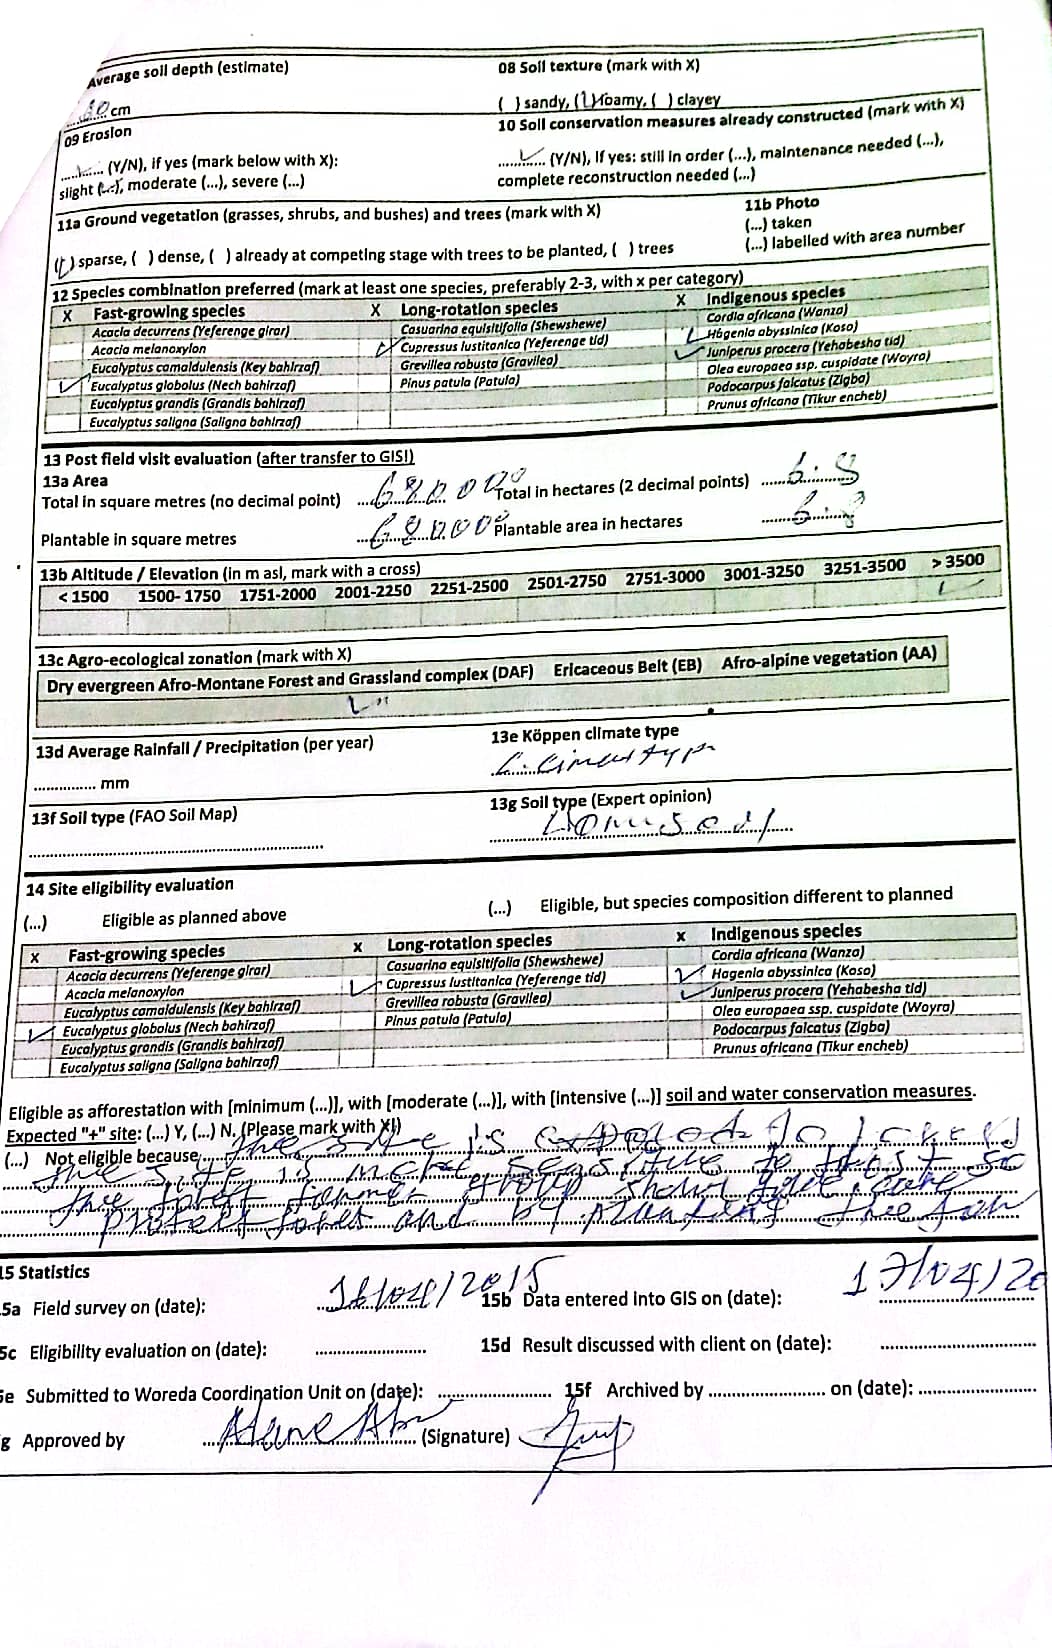 Average soil depth (estimate)
08 Soil texture (mark with X)
cm
( ) sandy, ( ) loamy, ( ) clayey
09 Erosion
10 Soil conservation measures already constructed (mark with X)
(Y/N), if yes (mark below with X):
(Y/N), If yes: still in order (...), maintenance needed (...),
slight (...), moderate (...), severe (...)
complete reconstruction needed (...)
11a Ground vegetation (grasses, shrubs, and bushes) and trees (mark with X)
11b Photo
(...) taken
( ) sparse, ( ) dense, ( ) already at competing stage with trees to be planted, ( ) trees
(...) labelled with area number
12 Species combination preferred (mark at least one species, preferably 2-3, with x per category)
X Fast-growing species X Long-rotation species X Indigenous species
Acacia decurrens (Yeferenge girar) Casuarina equisitifolia (Shewshewe) Cordia africana (Wanza)
Acacia melanoxylon Cupressus lustitanica (Yeferenge tid) Hagenia abyssinica (Koso)
Eucalyptus camaldulensis (Key bahirzaf) Grevillea robusta (Gravilea) Juniperus procera (Yehabesha tid)
Eucalyptus globolus (Nech bahirzaf) Pinus patula (Patula) Olea europaea ssp. cuspidate (Woyra)
Eucalyptus grandis (Grandis bahirzaf) Podocarpus falcatus (Zigba)
Eucalyptus saligna (Saligna bahirzaf) Prunus africana (Tikur encheb)
13 Post field visit evaluation (after transfer to GIS!)
13a Area
Total in square metres (no decimal point) Total in hectares (2 decimal points) 6.8
Plantable in square metres Plantable area in hectares 6.8
13b Altitude / Elevation (in m asl, mark with a cross)
< 1500 1500- 1750 1751-2000 2001-2250 2251-2500 2501-2750 2751-3000 3001-3250 3251-3500 > 3500
13c Agro-ecological zonation (mark with X)
Dry evergreen Afro-Montane Forest and Grassland complex (DAF) Ericaceous Belt (EB) Afro-alpine vegetation (AA)
13d Average Rainfall / Precipitation (per year)
13e Köppen climate type
mm
13f Soil type (FAO Soil Map)
13g Soil type (Expert opinion)
14 Site eligibility evaluation
(...) Eligible as planned above
(...) Eligible, but species composition different to planned
x Fast-growing species x Long-rotation species x Indigenous species
Acacia decurrens (Yeferenge girar) Casuarina equisitifolia (Shewshewe) Cordia africana (Wanza)
Acacia melanoxylon Cupressus lustitanica (Yeferenge tid) Hagenia abyssinica (Koso)
Eucalyptus camaldulensis (Key bahirzaf) Grevillea robusta (Gravilea) Juniperus procera (Yehabesha tid)
Eucalyptus globolus (Nech bahirzaf) Pinus patula (Patula) Olea europaea ssp. cuspidate (Woyra)
Eucalyptus grandis (Grandis bahirzaf) Podocarpus falcatus (Zigba)
Eucalyptus saligna (Saligna bahirzaf) Prunus africana (Tikur encheb)
Eligible as afforestation with [minimum (...)], with [moderate (...)], with [intensive (...)] soil and water conservation measures.
Expected "+" site: (...) Y, (...) N, (Please mark with X!)
(...) Not eligible because the site is
the site is sensitive to
the forest farmer group
protect and by planting
15 Statistics
5a Field survey on (date): 16/04/2015 15b Data entered into GIS on (date): 17/04/20
5c Eligibility evaluation on (date): 15d Result discussed with client on (date):
5e Submitted to Woreda Coordination Unit on (date): 15f Archived by on (date):
g Approved by (Signature)